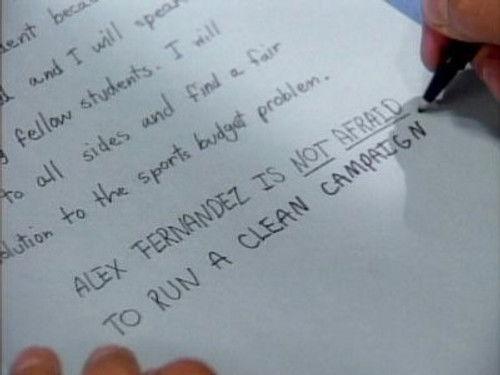 dent because
and I will speak
fellow students. I will
to all sides and find a fair
solution to the sports budget problem.
ALEX FERNANDEZ IS NOT AFRAID
TO RUN A CLEAN CAMPAIGN